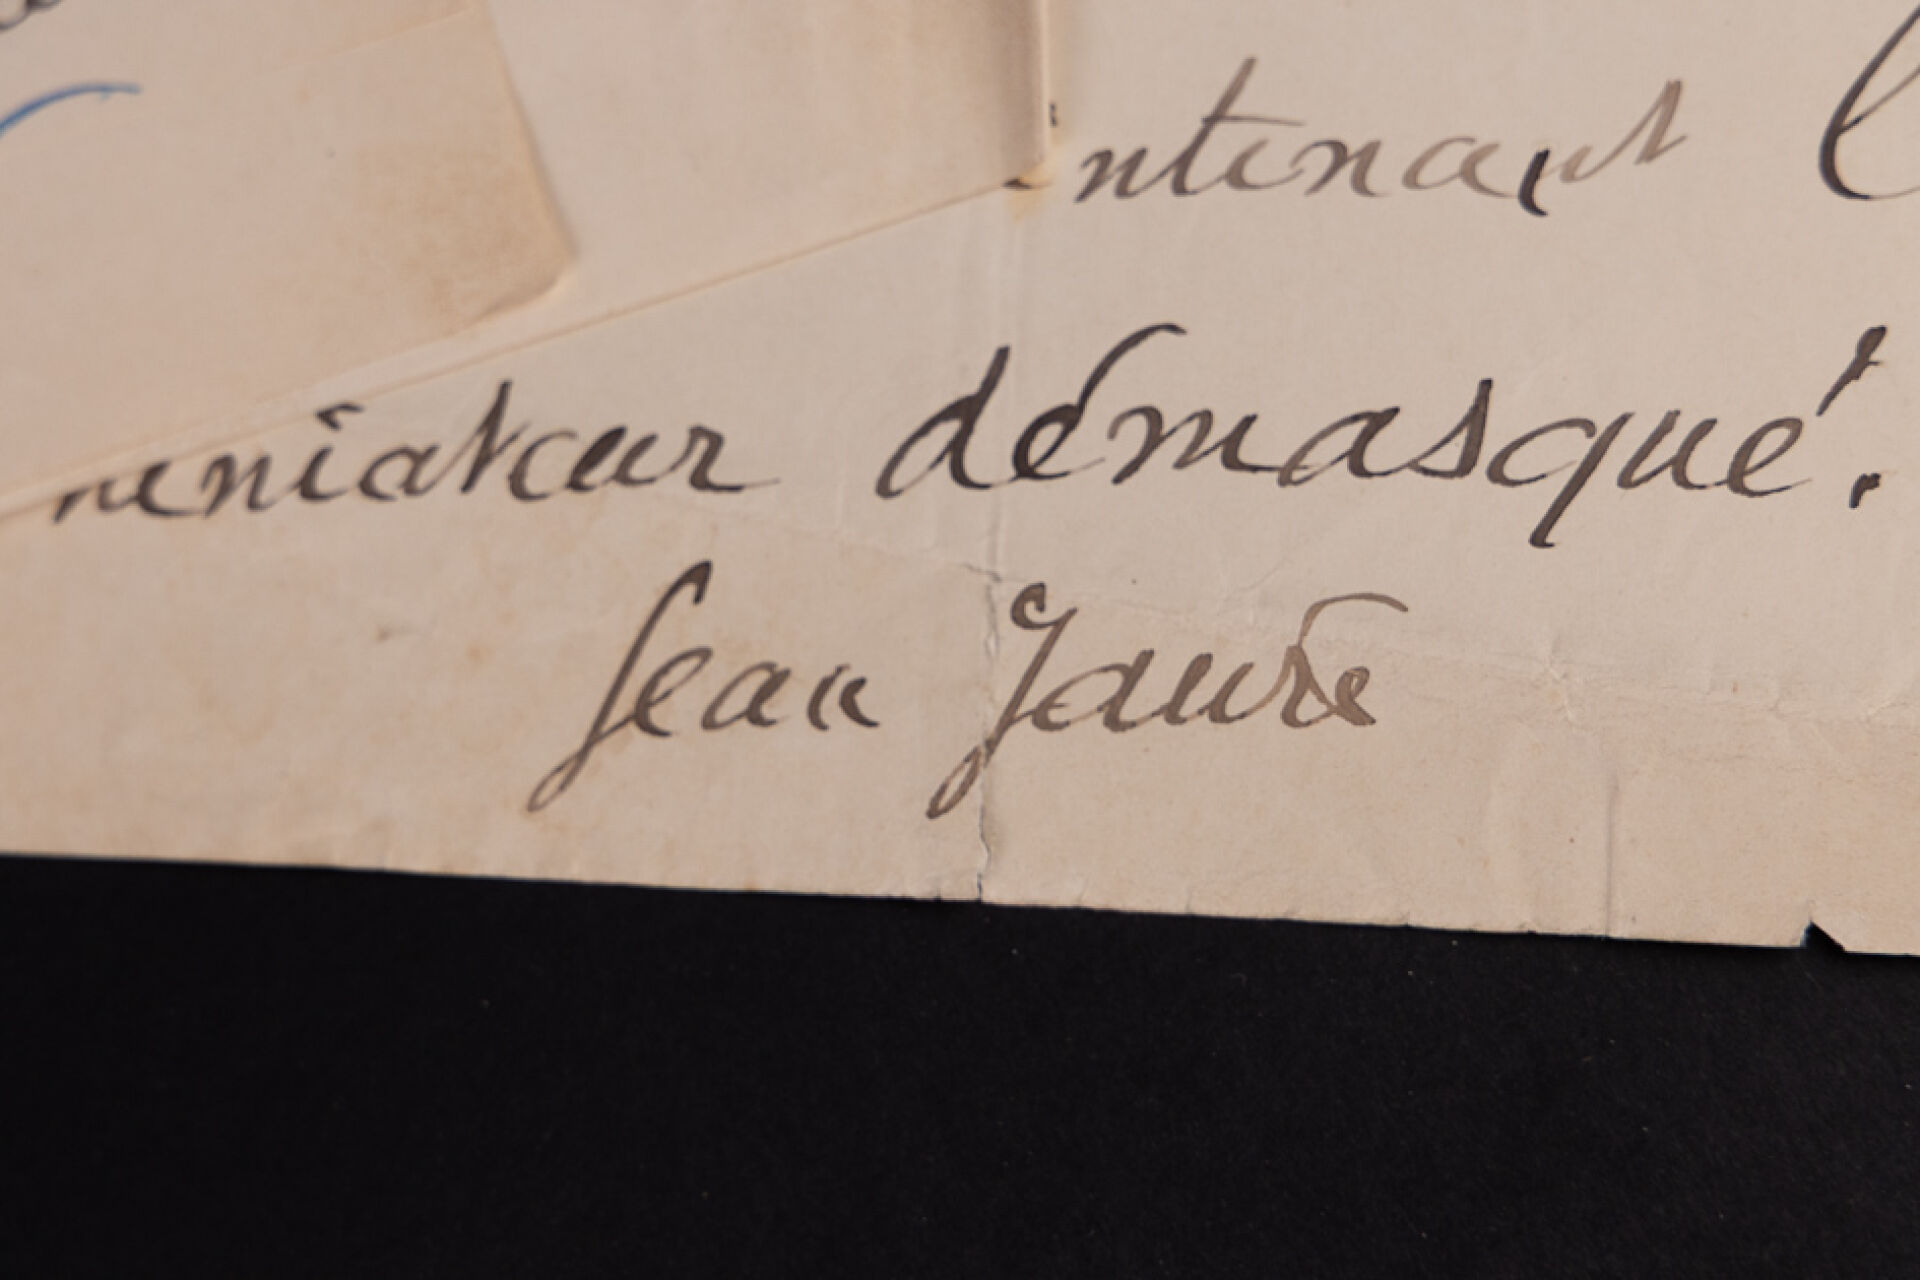 ntenant
meniateur démasqué!
Jean Jaurès